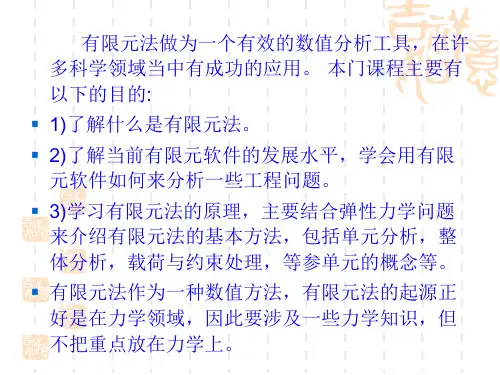 有限元法做为一个有效的数值分析工具，在许
多科学领域当中有成功的应用。 本门课程主要有
以下的目的:
1)了解什么是有限元法。
2)了解当前有限元软件的发展水平，学会用有限
元软件如何来分析一些工程问题。
3)学习有限元法的原理，主要结合弹性力学问题
来介绍有限元法的基本方法，包括单元分析，整
体分析，载荷与约束处理，等参单元的概念等。
有限元法作为一种数值方法，有限元法的起源正
好是在力学领域，因此要涉及一些力学知识，但
不把重点放在力学上。